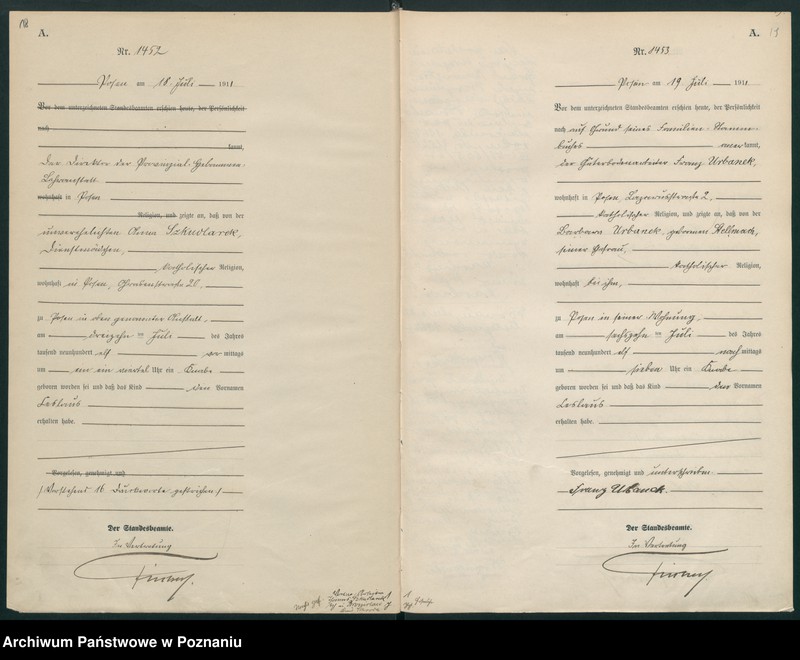 A.
Nr. 1452
Posen am 18. Juli 1911
Vor dem unterzeichneten Standesbeamten erschien heute, der Persönlichkeit
nach
kannt,
Der Direktor der Provinzial-Hebammen-
Lehranstalt
wohnhaft in Posen
Religion, und zeigte an, daß von der
unverehelichten Anna Szkudlarek,
Dienstmädchen,
katholischer Religion,
wohnhaft in Posen,
zu Posen in der genannten Anstalt,
am dreizehn ten Juli des Jahres
tausend neunhundert elf vor mittags
um ein ein viertel Uhr ein Knabe
geboren worden sei und daß das Kind den Vornamen
Ceslaus
erhalten habe.
Vorgelesen, genehmigt und
(Vorstehend 16 Druckworte gestrichen)
Der Standesbeamte.
In Vertretung
A.
13
Nr. 1453
Posen am 19 Juli 1911
Vor dem unterzeichneten Standesbeamten erschien heute, der Persönlichkeit
nach auf Grund seines Familien-Stamm-
buches anerkannt,
der Güterbodenarbeiter Franz Urbanek,
wohnhaft in Posen, 2,
katholischer Religion, und zeigte an, daß von der
Barbara Urbanek, geborenen Stellmach,
seiner Ehefrau,
katholischer Religion,
wohnhaft bei ihm,
zu Posen in seiner Wohnung,
am sechszehn ten Juli des Jahres
tausend neunhundert elf nach mittags
um sieben Uhr ein Knabe
geboren worden sei und daß das Kind den Vornamen
Ceslaus
erhalten habe.
Vorgelesen, genehmigt und unterschrieben
Franz Urbanek.
Der Standesbeamte.
In Vertretung
Archiwum Państwowe w Poznaniu